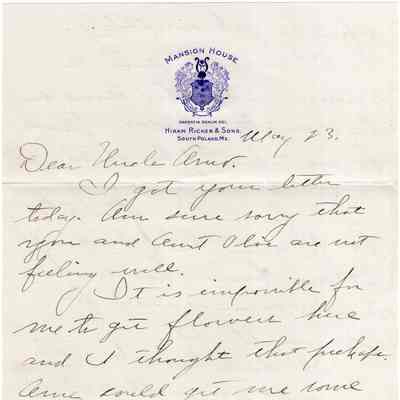 MANSION HOUSE
HIRAM RICKER & SONS.
SOUTH POLAND, ME.
May 23.
Dear Uncle Arno.
I got your letter
today. Am sure sorry that
you and Aunt Flos are not
feeling well.
It is impossible for
me to get flowers here
and I thought that perhaps
could get me some